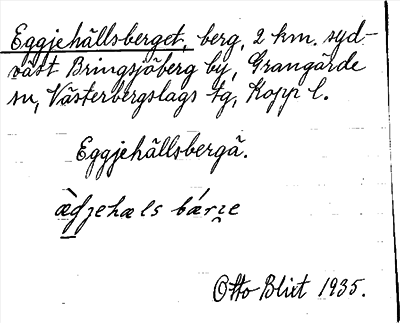 Eggjehällsberget, berg, 2 km. syd-
väst Bringsjöberg by, Grangärde
sn, Västerbergslags tg, Kopp l.
Eggjehällsbergä.
Otto Blixt 1935.